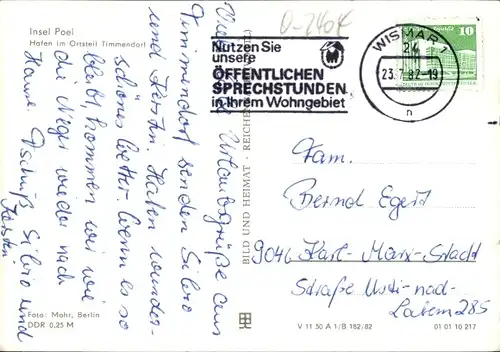 Insel Poel
Hafen im Ortsteil Timmendorf
Viele Urlaubsgrüße aus
Timmendorf senden Silvio
und Kerstin. Haben wunder-
schönes Wetter. Wenn es so
bleibt kommen wir wie
die Neger wieder nach
Hause. Tschüß Silvio und
Kerstin
Foto: Mohr, Berlin
DDR 0,25 M
BILD UND HEIMAT · REICHENBACH
0-2404
Nutzen Sie
unsere
ÖFFENTLICHEN
SPRECHSTUNDEN
in Ihrem Wohngebiet
WISMAR 1
24
23.7.82-19
n
10
Fam.
Bernd Egert
9046 Karl-Marx-Stadt
Straße Usti-nad-
Labem 285
V 11 50 A 1/B 182/82
01 01 10 217